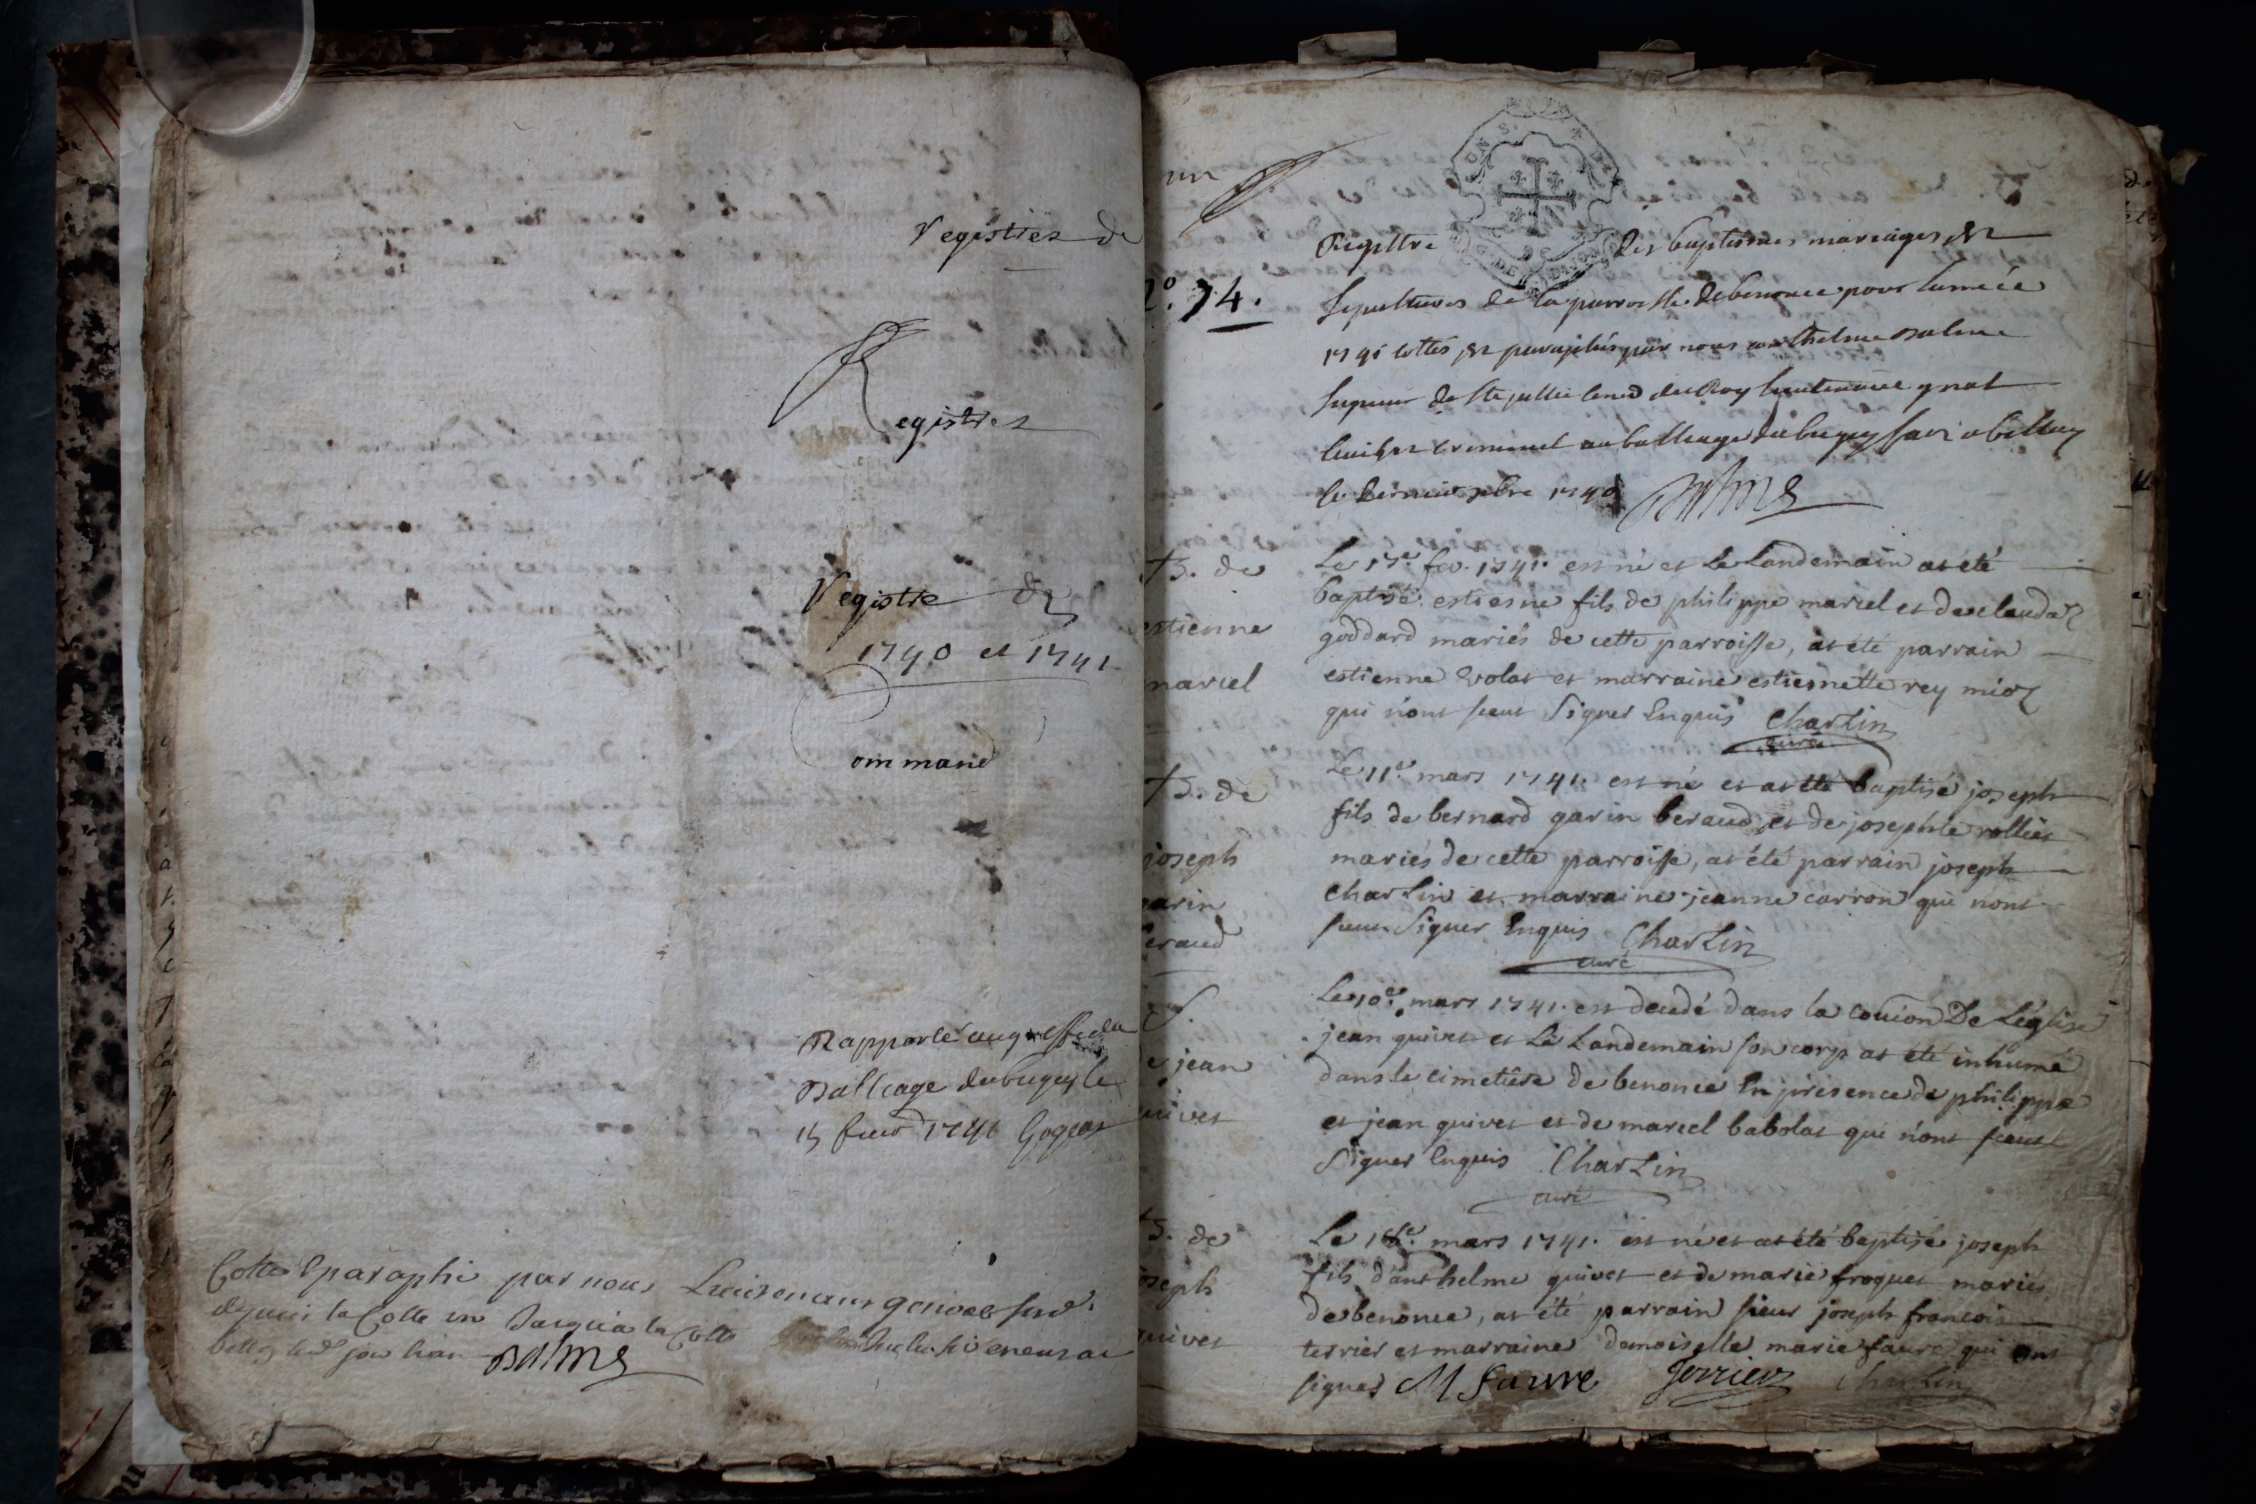 registres de
Registres
registre de
1740 et 1741
command
Rapporté au greffe du
Balliage du bugey le
15 1741
Cotté & paraphé par nous Lieutenant general
depuis la Cotte un Jusqu'a la Cotte
Balme
un
N.º 74.
Registre des baptesmes mariages &
sepultures de la parroisse de benonce pour lannée
1741 cottés & paraphés par nous anthelme balme
seigneur de Ste jullie Cons.er du Roy lieutenant gnal
civil & criminel au balliage du bugey
le dernier xbre 1740 Balme
B. de
estienne
marcel
Le 17e. fev. 1741. est né et Le Landemain at été
baptisé estienne fils de philippe marcel et de claudaz
goddard mariés de cette parroisse, at été parrain
estienne volat et marraine estiennette rey mioz
qui n'ont sceut Signer Enquis Charlin
curé
B. de
joseph
garin
beraud
Le 11e. mars 1741. est né et at été baptisé joseph
fils de bernard garin beraud et de josephte rollier
mariés de cette parroisse, at été parrain joseph
Charlin et marraine jeanne carron qui nont
sceut Signer Enquis Charlin
curé
S.
de jean
quivet
Le 10e. mars 1741. est decedé dans la De L'église
jean quivet et Le Landemain son corps at été inhumé
dans le cimetière de benonce En présence de philippe
et jean quivet et de marcel babolat qui n'ont sceut
Signer Enquis Charlin
curé
B. de
joseph
quivet
Le mars 1741. est né et at été baptisé joseph
fils d'anthelme quivet et de marie froquet mariés
de benonce, at été parrain sieur joseph francois
terrier et marraine demoiselle marie faure qui ont
signés M faurre Terrier Charlin